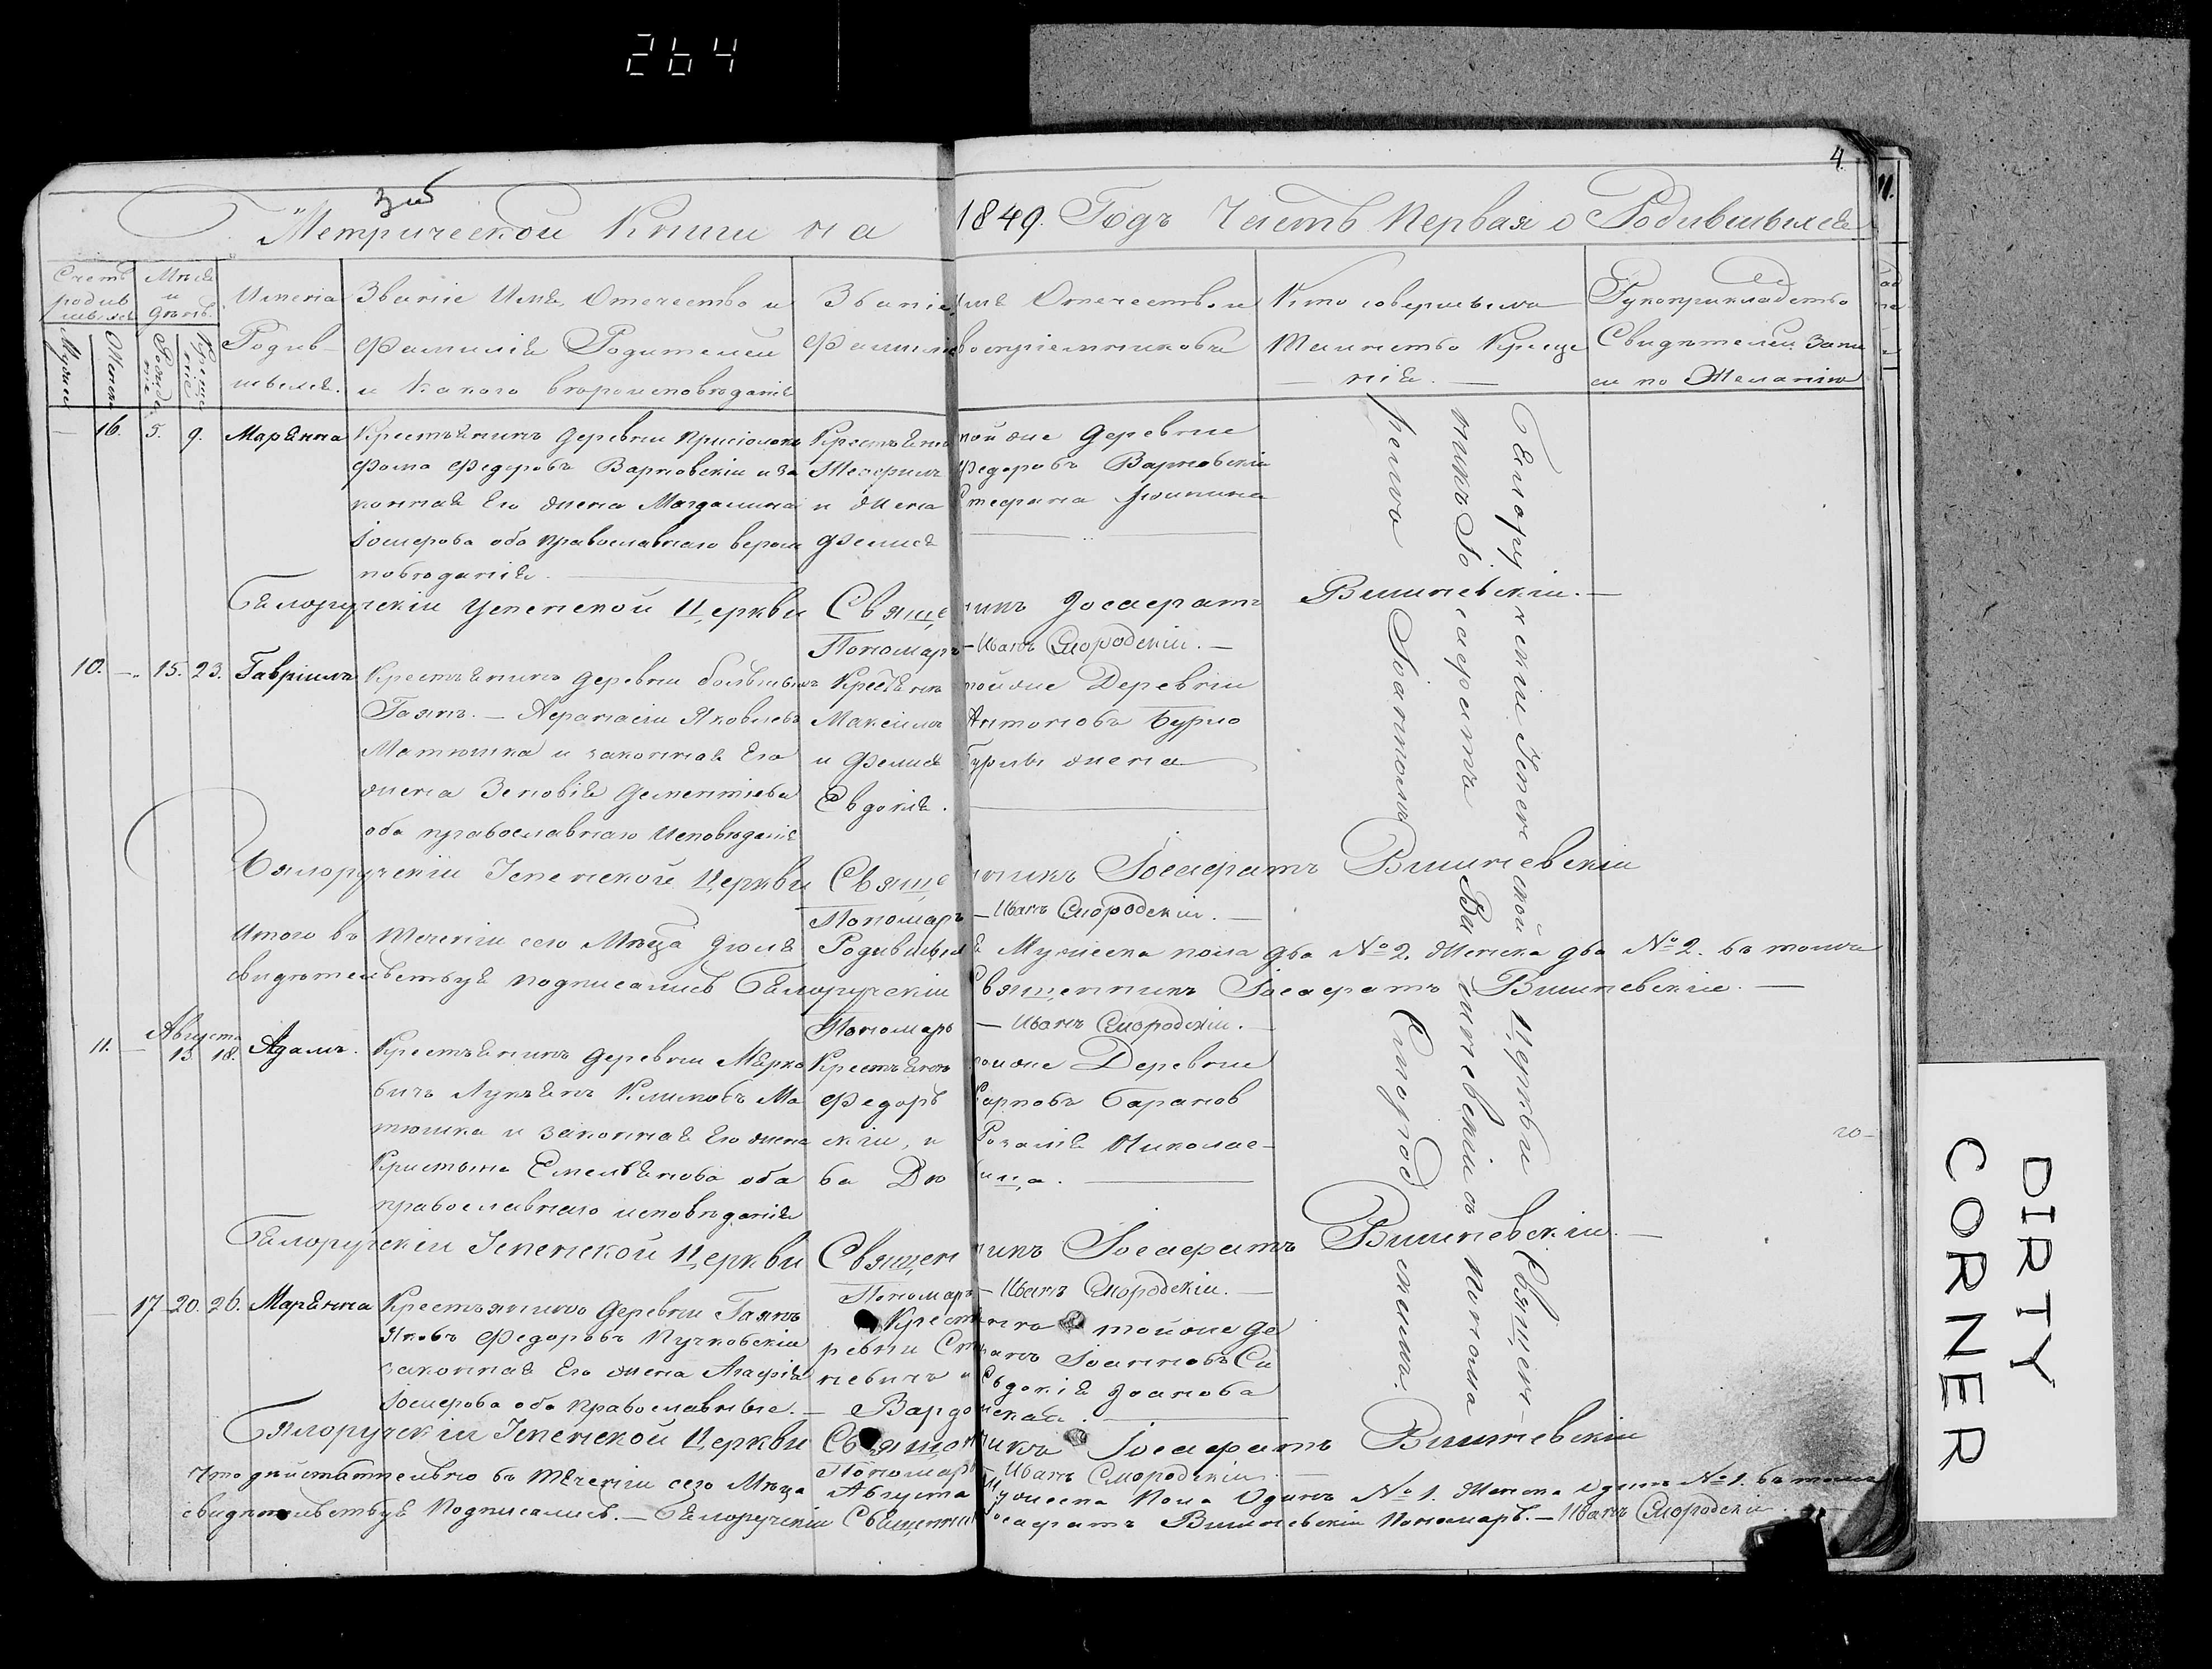 264
4
Метрической Книги на 1849. Годъ Часть Первая о Родившихся
Счетъ родив шихся
Мужска
Женска
Мѣся и день.
Рожде ніе
Креще ніе
Имена Родив шихся.
Званіе Имя, Отечество и
Фамилія Родителей
и Какого вѣроисповѣданія
Званіе, Имя Отечество и
Фамилія воспріемниковъ
Кто совершилъ
Таинство Креще
нія.
Рукоприкладство
Свидѣтелей запи
си по Желанію
16. 5. 9. Маряна
Крестьянинъ деревни
Фома Федоровъ Варновскій и за
конная Его жена Магдалина
Іосифова оба православнаго вероис
повѣданія.
Крестьяне той же деревне
Федоровъ Варновскій
и жена Стефана
Фелися
Бялоручскій Успенской Церкви Священникъ Іосафатъ Вишневскій.
Пономарь — Иванъ Смородскій.
10. 15. 23. Гавріилъ
Крестьянинъ деревни большихъ
Гаянъ. — Афанасій Яковлевъ
Матюшка и законная Его
жена Зеновія Дементіева
оба православнаго исповѣданія
Крестьяне той же Деревни
Максимъ Антоновъ Бурло
и Фелися Бурлы жена
Евдокія.
Бялоручскій Успенской Церкви Священникъ Іосафатъ Вишневскій
Пономарь — Иванъ Смородскій.
Итого въ теченіи сего Мѣсца Іюля Родившихся Мужеска пола два № 2. Женска два № 2. въ томъ
свидѣтельствуя подписались Бялоручскій Священникъ Іосафатъ Вишневскій.
Пономарь — Иванъ Смородскій.
Августа
11. 15 18. Адамъ.
Крестьянинъ деревни Мярко
вичъ Лукьянъ Климовъ Ма
тюшка и законная Его жена
Кристина Емельянова оба
православнаго исповѣданія
Крестьяне той же Деревне
Федоръ Карповъ Баранов
скій, и Розалія Николае
ва
Бялоручскій Успенской Церкви Священникъ Іосафатъ Вишневскій.
Пономарь — Иванъ Смородскій.
17 20. 26. Маряна
Крестьянинъ деревни Гаянъ
Яковъ Федоровъ Пучковскій
законная Его жена Агафія
Іосифова оба православные.
той же де
ревни Іоанновъ Си
невичъ и Евдокія Іоанова
Бялоручскій Успенской Церкви Священникъ Іосафатъ Вишневскій
Пономарь Иванъ Смородскій
Что дѣйствительно въ теченіи сего Мѣсца Августа Мужеска Пола Одинъ № 1. Женска Одинъ № 1. въ томъ
свидѣтельствуя Подписались. — Бялоручскій Священникъ Іосафатъ Вишневскій Пономарь. — Иванъ Смородскій.
Бялоручскій Успенской Церкви Священ-
никъ Іосафатъ Вишневскій съ понома
ремъ Іоанномъ Смородскимъ.
DIRTY
CORNER